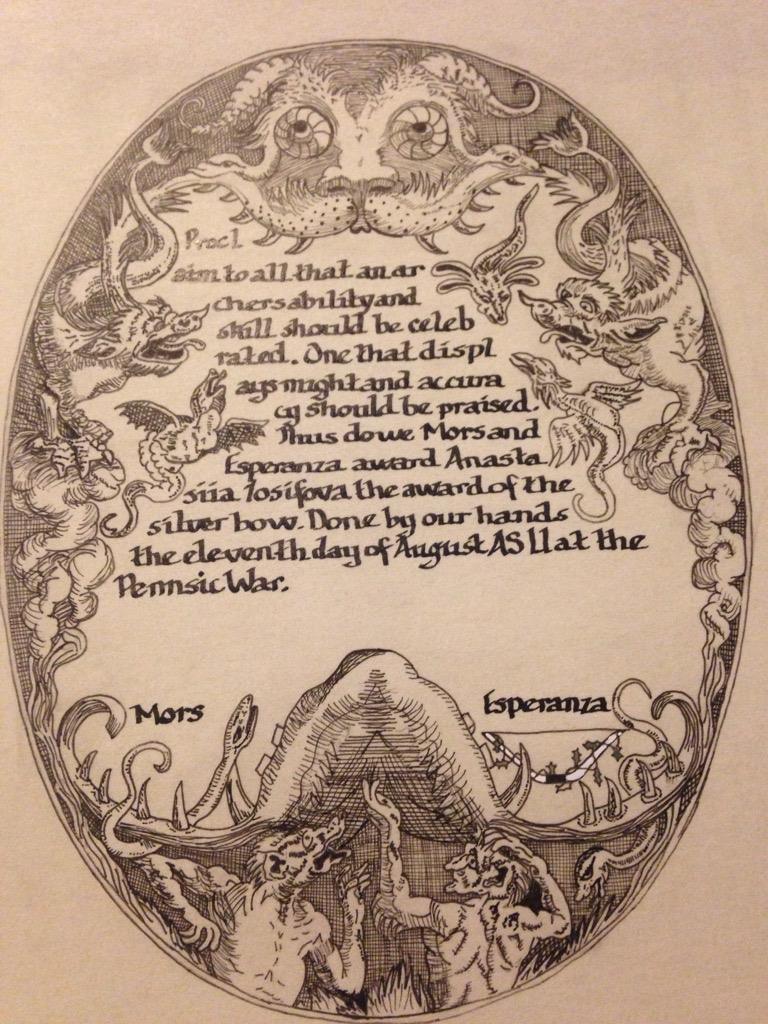 Procl
aim to all that an ar
chers ability and
skill should be celeb
rated. One that displ
ays might and accura
cy should be praised.
Thus do we Mors and
Esperanza award Anasta
siia Iosifova the award of the
silver bow. Done by our hands
the eleventh day of August AS LI at the
Pennsic War.
Mors
Esperanza